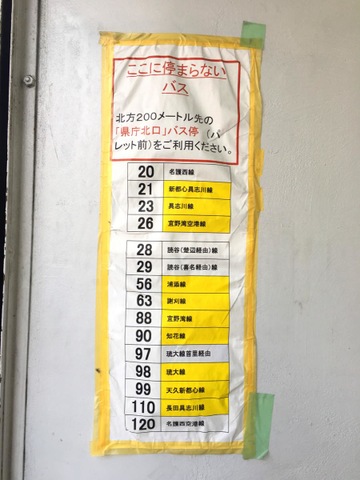 ここに停まらない
バス
北方200メートル先の
「県庁北口」バス停 (パ
レット前)をご利用ください。
20 名護西線
21 新都心具志川線
23 具志川線
26 宜野湾空港線
28 読谷(楚辺経由)線
29 読谷(喜名経由)線
56 浦添線
63 謝苅線
88 宜野湾線
90 知花線
97 琉大線首里経由
98 琉大線
99 天久新都心線
110 長田具志川線
120 名護西空港線